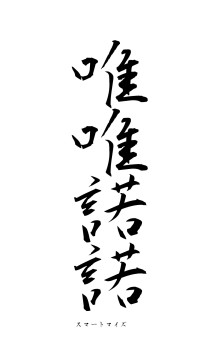 唯唯諾諾
スマートマイズ